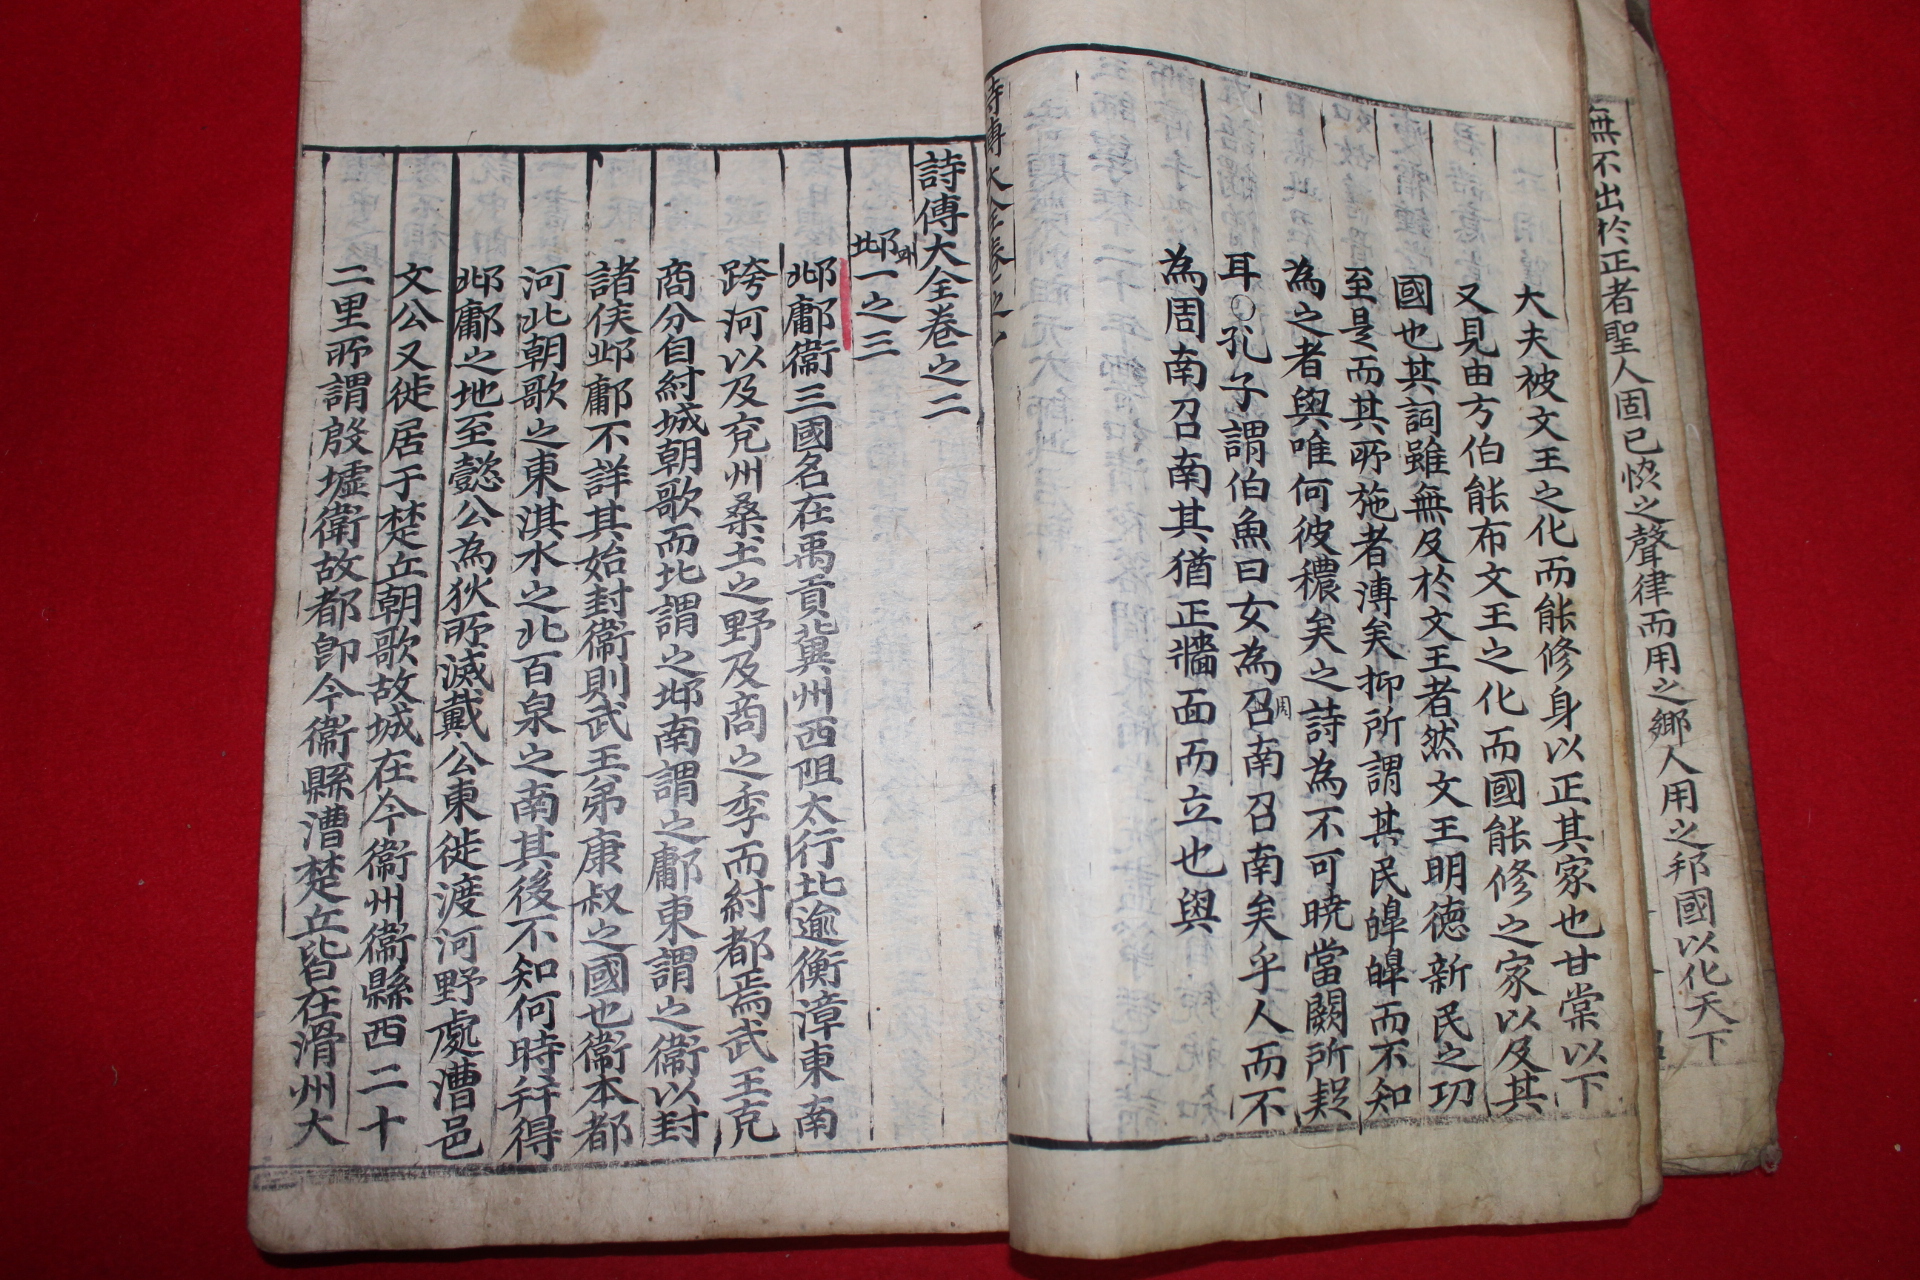 無不出於正者聖人固已恊之聲律而用之鄉人用之邦國以化天下
大夫被文王之化而能修身以正其家也甘棠以下
又見由方伯能布文王之化而國能修之家以及其
國也其詞雖無及於文王者然文王明德新民之功
至是而其所施者溥矣抑所謂其民皥皥而不知
為之者與唯何彼穠矣之詩為不可曉當闕所疑
耳○孔子謂伯魚曰女為周南召南矣乎人而不
為周南召南其猶正牆面而立也與
詩傳大全卷之
詩傳大全卷之二
邶一之三
邶鄘衛三國名在禹貢冀州西阻太行北逾衡漳東南
跨河以及兗州桑土之野及商之季而紂都焉武王克
商分自紂城朝歌而北謂之邶南謂之鄘東謂之衛以封
諸侯邶鄘不詳其始封衛則武王弟康叔之國也衛本都
河北朝歌之東淇水之北百泉之南其後不知何時并得
邶鄘之地至懿公為狄所滅戴公東徙渡河野處漕邑
文公又徙居于楚丘朝歌故城在今衛州衛縣西二十
二里所謂殷墟衛故都即今衛縣漕楚丘皆在滑州大